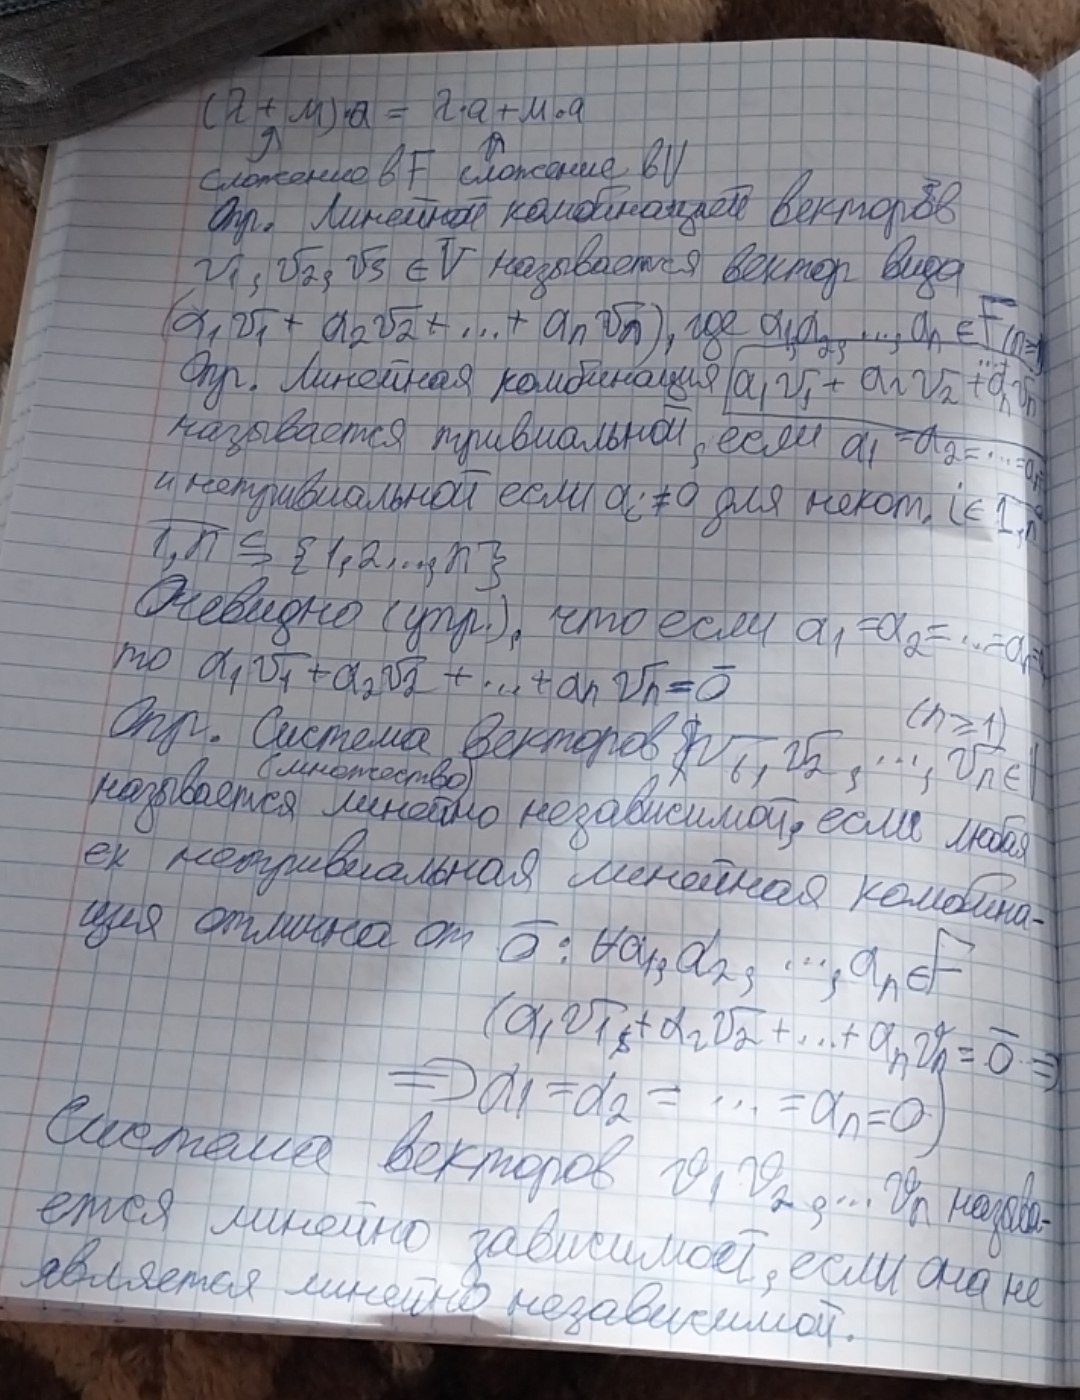 (λ + μ)·a = λ·a + μ·a
сложение в F сложение в V
Опр. Линейной комбинацией векторов
v1, v2, v3 ∈ V называется вектор вида
(α1v1 + α2v2 + ... + αnvn), где α1, α2, ..., αn ∈ F (n≥1)
Опр. Линейная комбинация α1v1 + α2v2 + ... αnvn
называется тривиальной, если α1 = α2 = ... = αn =
и нетривиальной если αi ≠ 0 для некот. i ∈ 1,n
1,n ≤ {1, 2 ..., n}
Очевидно (упр.), что если α1 = α2 = ... = αn =
то α1v1 + α2v2 + ... + αnvn = 0̄
(n ≥ 1)
Опр. Система векторов v1, v2, ..., vn ∈
(множество)
называется линейно независимой, если любая
ех нетривиальная линейная комбина-
ция отлична от 0̄: ∀α1, α2, ..., αn ∈ F
(α1v1 + α2v2 + ... + αnvn = 0̄ ⇒
⇒ α1 = α2 = ... = αn = 0)
Система векторов v1 v2, ... vn называ-
ется линейно зависимой, если она не
является линейно независимой.